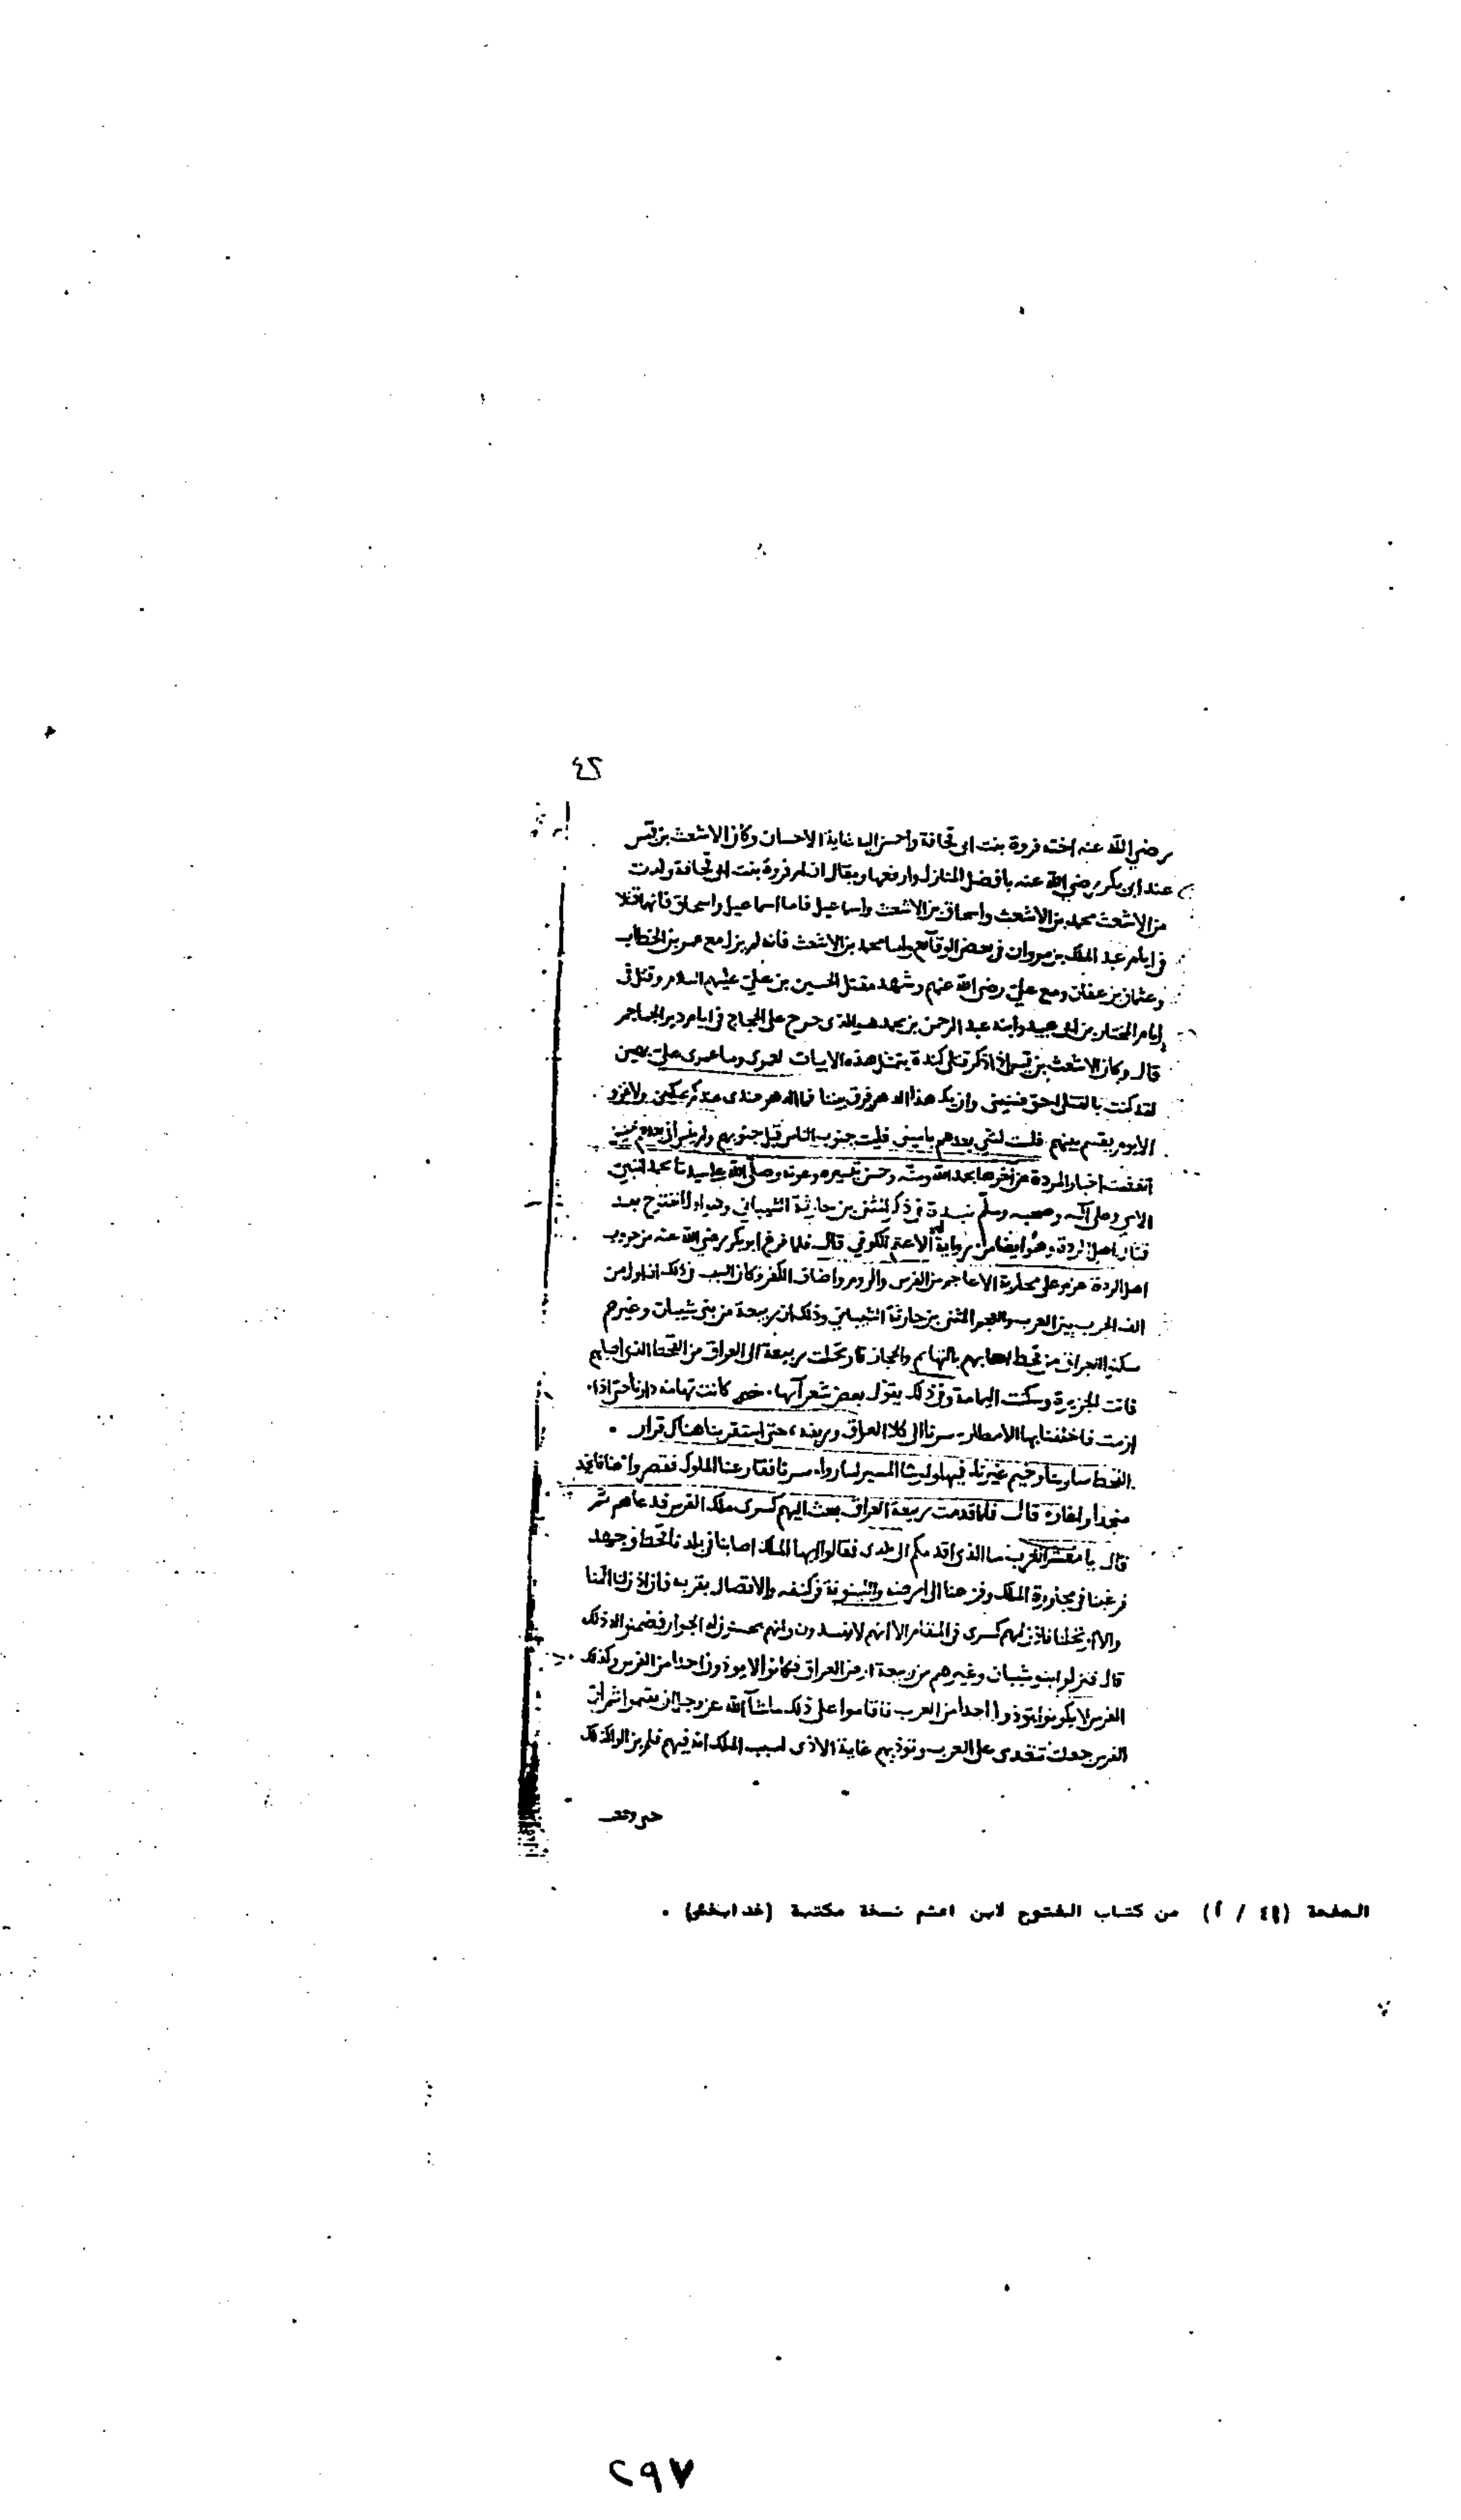 ٤٢
رضي الله عنه اخته فروة بنت ابي قحافة واحسن اليه غاية الاحسان وكان الاشعث بن قيس
عند ابي بكر رضي الله عنه بافضل المنازل وارفعها ويقال ان ام فروة بنت ابي قحافة ولدت
من الاشعث محمد بن الاشعث واسحاق بن الاشعث واسماعيل فاما اسماعيل واسحاق فانهما قتلا
في ايام عبد الملك بن مروان في بعض الوقائع واما محمد بن الاشعث فانه لم يزل مع عمر بن الخطاب
وعثمان بن عفان ومع علي رضي الله عنهم وشهد مقتل الحسين بن علي عليهم السلام وقتل في
ايام المختار بن ابي عبيد وابنه عبد الرحمن بن محمد هو الذى خرج على الحجاج في ايام دير الجماجم
قال وكان الاشعث بن قيس اذا ذكر قتلى كندة يتمثل هذه الابيات لعمرى وما عمرى علي بهين
لقد كنت بالقتلى احق ضنيني وان يك هذا الدهر فرق بيننا فما الدهر عندى بمكين ولا غرو
الا يوم يقسم بينهم فليت جنوب الناس قبل جنوبهم
انقضت اخبار الردة عن آخرها بحمد الله ومنه وحسن تيسيره وعونه وصلى الله على سيدنا محمد النبي
الامي وعلى آله وصحبه وسلم نبـذة في ذكر المثنى بن حارثة الشيباني وهو اول الفتوح بعد
قتال اهل الردة وهو ايضا من رواية الاعثم الكوفي قال فلما فرغ ابو بكر رضي الله عنه من حروب
اهل الردة عزم على محاربة الاعاجم من الفرس والروم واصناف الكفر وكان السبب في ذلك ان اول من
الف الحرب بين العرب والعجم المثنى بن حارثة الشيباني وذلك ان ربيعة من بني شيبان وغيرهم
سكنوا العراق من قحط اصابهم بالتهايم والحجاز فارتحلت ربيعة الى العراق من القحط الذى اصابهم
فاتت الجزيرة وسكنت اليمامة وفي ذلك يقول بعض شعرآئها كانت تهامة دارنا حتى اذا
ازمت فاخلفنا بها الامطار سرنا الى كلا العراق وريفه حتى استقر بنا هناك قرار
قال فلما قدمت ربيعة العراق بعث اليهم كسرى ملك الفرس فدعاهم ثم
قال يا معشر العرب ما الذى اقدمكم الى بلدى فقالوا ايها الملك اصابنا في بلدنا قحط وجهد
فرغبنا في مجاورة الملك ونزعنا الى ارضه والكينونة في كنفه والاتصال بقربه فان اذن لنا اقمنا
والا ارتحلنا فاذن لهم كسرى في المقام الا انهم لا يفسدون وانهم يحسنون له الجوار فضمنوا له ذلك
قال فنزلوا بنو شيبان وغيرهم من ربيعة ارض العراق فكانوا لا يوذون احدا من الفرس وكذلك
الفرس لا يكونوا يوذوا احدا من العرب فاقاموا على ذلك ما شآء الله عز وجل ان يقيموا ثم ان
الفرس جعلت تتعدى على العرب وتوذيهم غاية الاذى لسبب الملك انه فيهم فلم يزالوا كذلك
حتى وقعت
الصفحة (٤٢ / أ) من كتاب الفتوح لابن اعثم نسخة مكتبة (خدابخش) .
٢٩٧